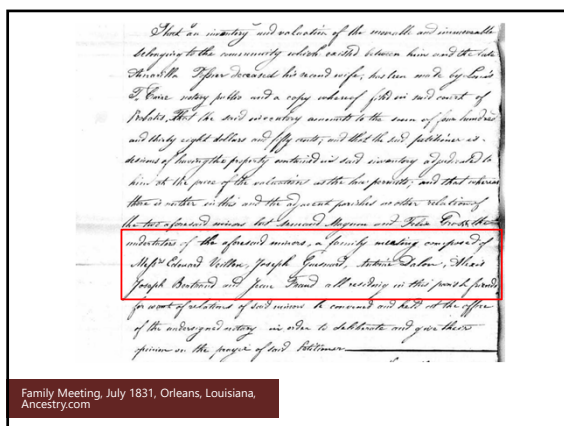 That an inventory and valuation of the movable and immovable
belonging to the community which existed between him and the late
deceased his second wife; has been made by Louis
T. Caire notary public and a copy whereof filed in said court of
Probates, That the said inventory amounts to the sum of four hundred
and thirty eight dollars and fifty cents; and that the said petitioner is
desirous of having the property contained in said inventory adjudicated to
him at the price of the valuations as the law permits; and that whereas
there is neither in this and the adjacent parishes no other relation of
the two aforesaid minors but and Felix the
undertutor of the aforesaid minors, a family meeting composed of
Messrs Edouard Joseph Antoine Alexis
Joseph Bertrand and Jean all residing in this parish friends
for want of relations of said minors be convened and held at the office
of the undersigned notary in order to deliberate and give their
opinion on the prayer of said Petitioner
Family Meeting, July 1831, Orleans, Louisiana,
Ancestry.com